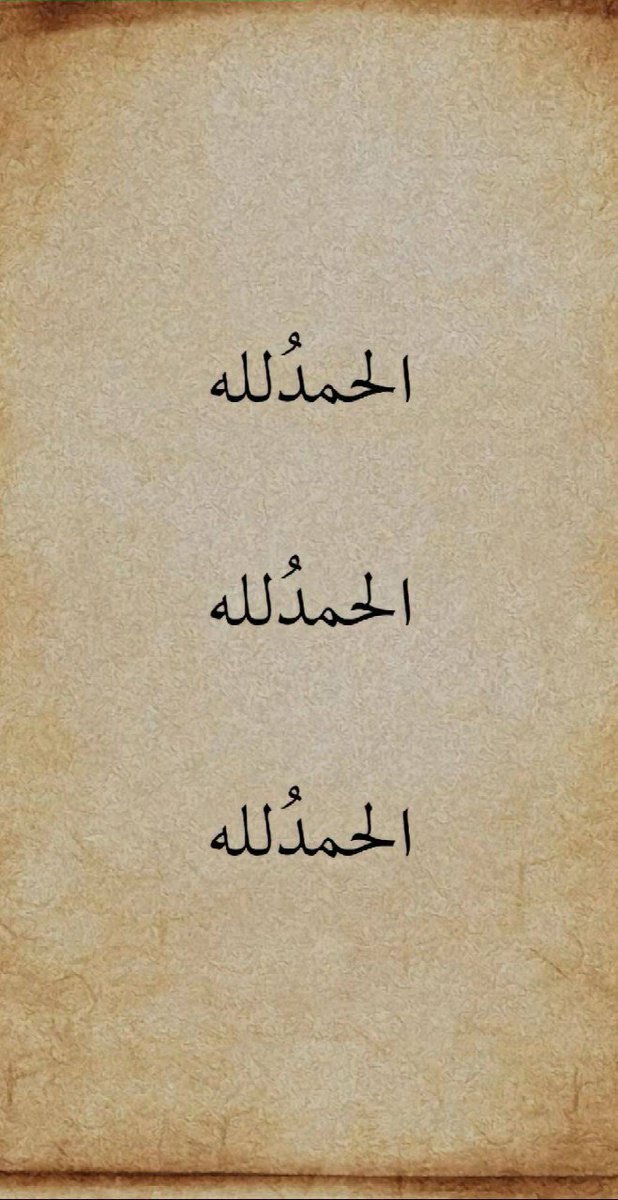 الحمدُلله
الحمدُلله
الحمدُلله